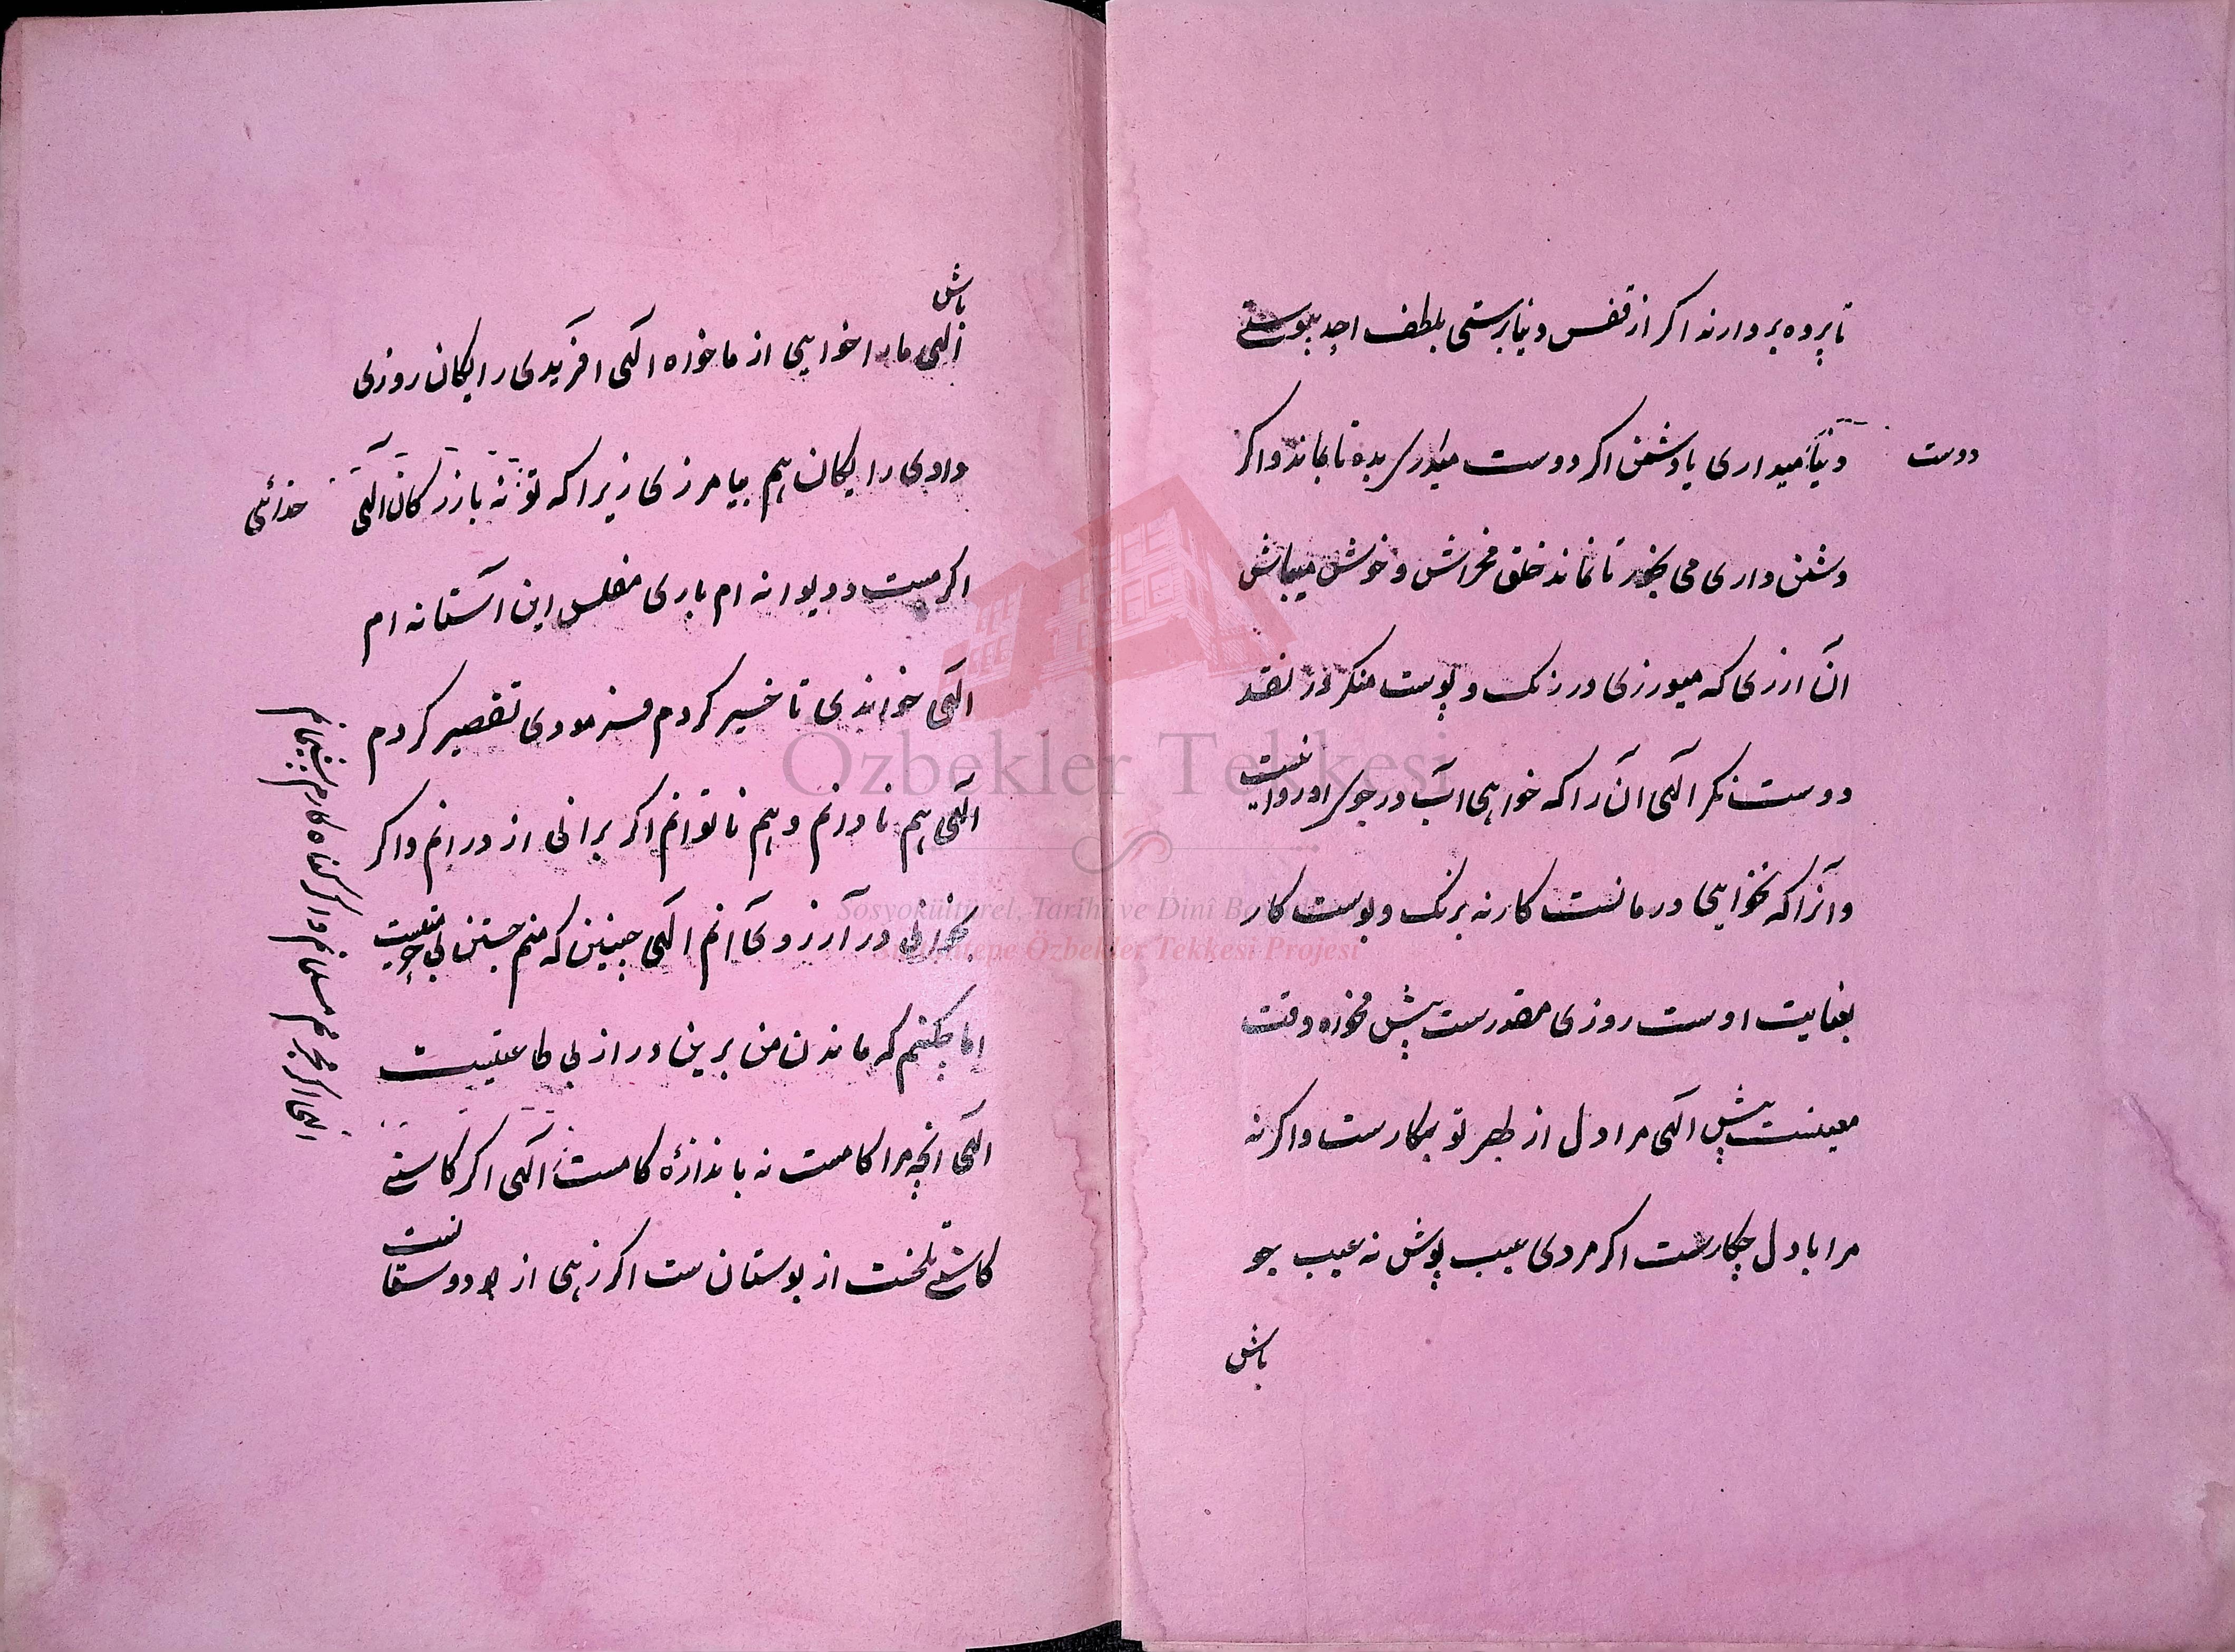 تا پرده بردارند اگر از قفس دنیا برستی بلطف احد پیوستی
دوست
دنیا میداری یا دشمن اگر دوست میداری بده تا بماند و اگر
دشمن داری می بخور تا نماند خلق مخراش و خوش میباش
آن ارزی که میورزی در رنک و پوست منکر در نقد
دوست نکر الهی آن را که خواهی آب در جوی او روانیست
وآنرا که نخواهی درمانست کار نه برنک و پوست کار
بعنایت اوست روزی مقدرست بیش مخور وقت
معینست پیش الهی مرا دل از بهر تو بکارست واکرنه
مرا با دل چکارست اکر مردی عیب پوش نه عیب جو
باش
باش
الهی ما را خواهی از ما خواه الهی افریدی رایکان روزی
دادی رایکان هم بیامرزی زیرا که تو نه بازرکان الهی
خدائی
اکر مست و دیوانه ام باری مفلس این آستانه ام
الهی خواندی تاخیر کردم فرمودی تقصیر کردم
الهی هم نادانم و هم ناتوانم اکر برانی از درانم واکر
بخوانی در آرزوی آنم الهی چنین که منم جستن بی نیست
اما چکنم که ماندن من برین در از بی طاعتیست
الهی انچه مرا کامست نه باندازهٔ کامست الهی اکر کاستی
کاشتی تلخست از بوستانست اکر زهی از دوستانست
الهی اکر مجرم مسلمانم واکر کناه کارم پشیمانم
Özbekler Tekkesi
Sosyokültürel, Tarihî ve Dinî
Özbekler Tekkesi Projesi